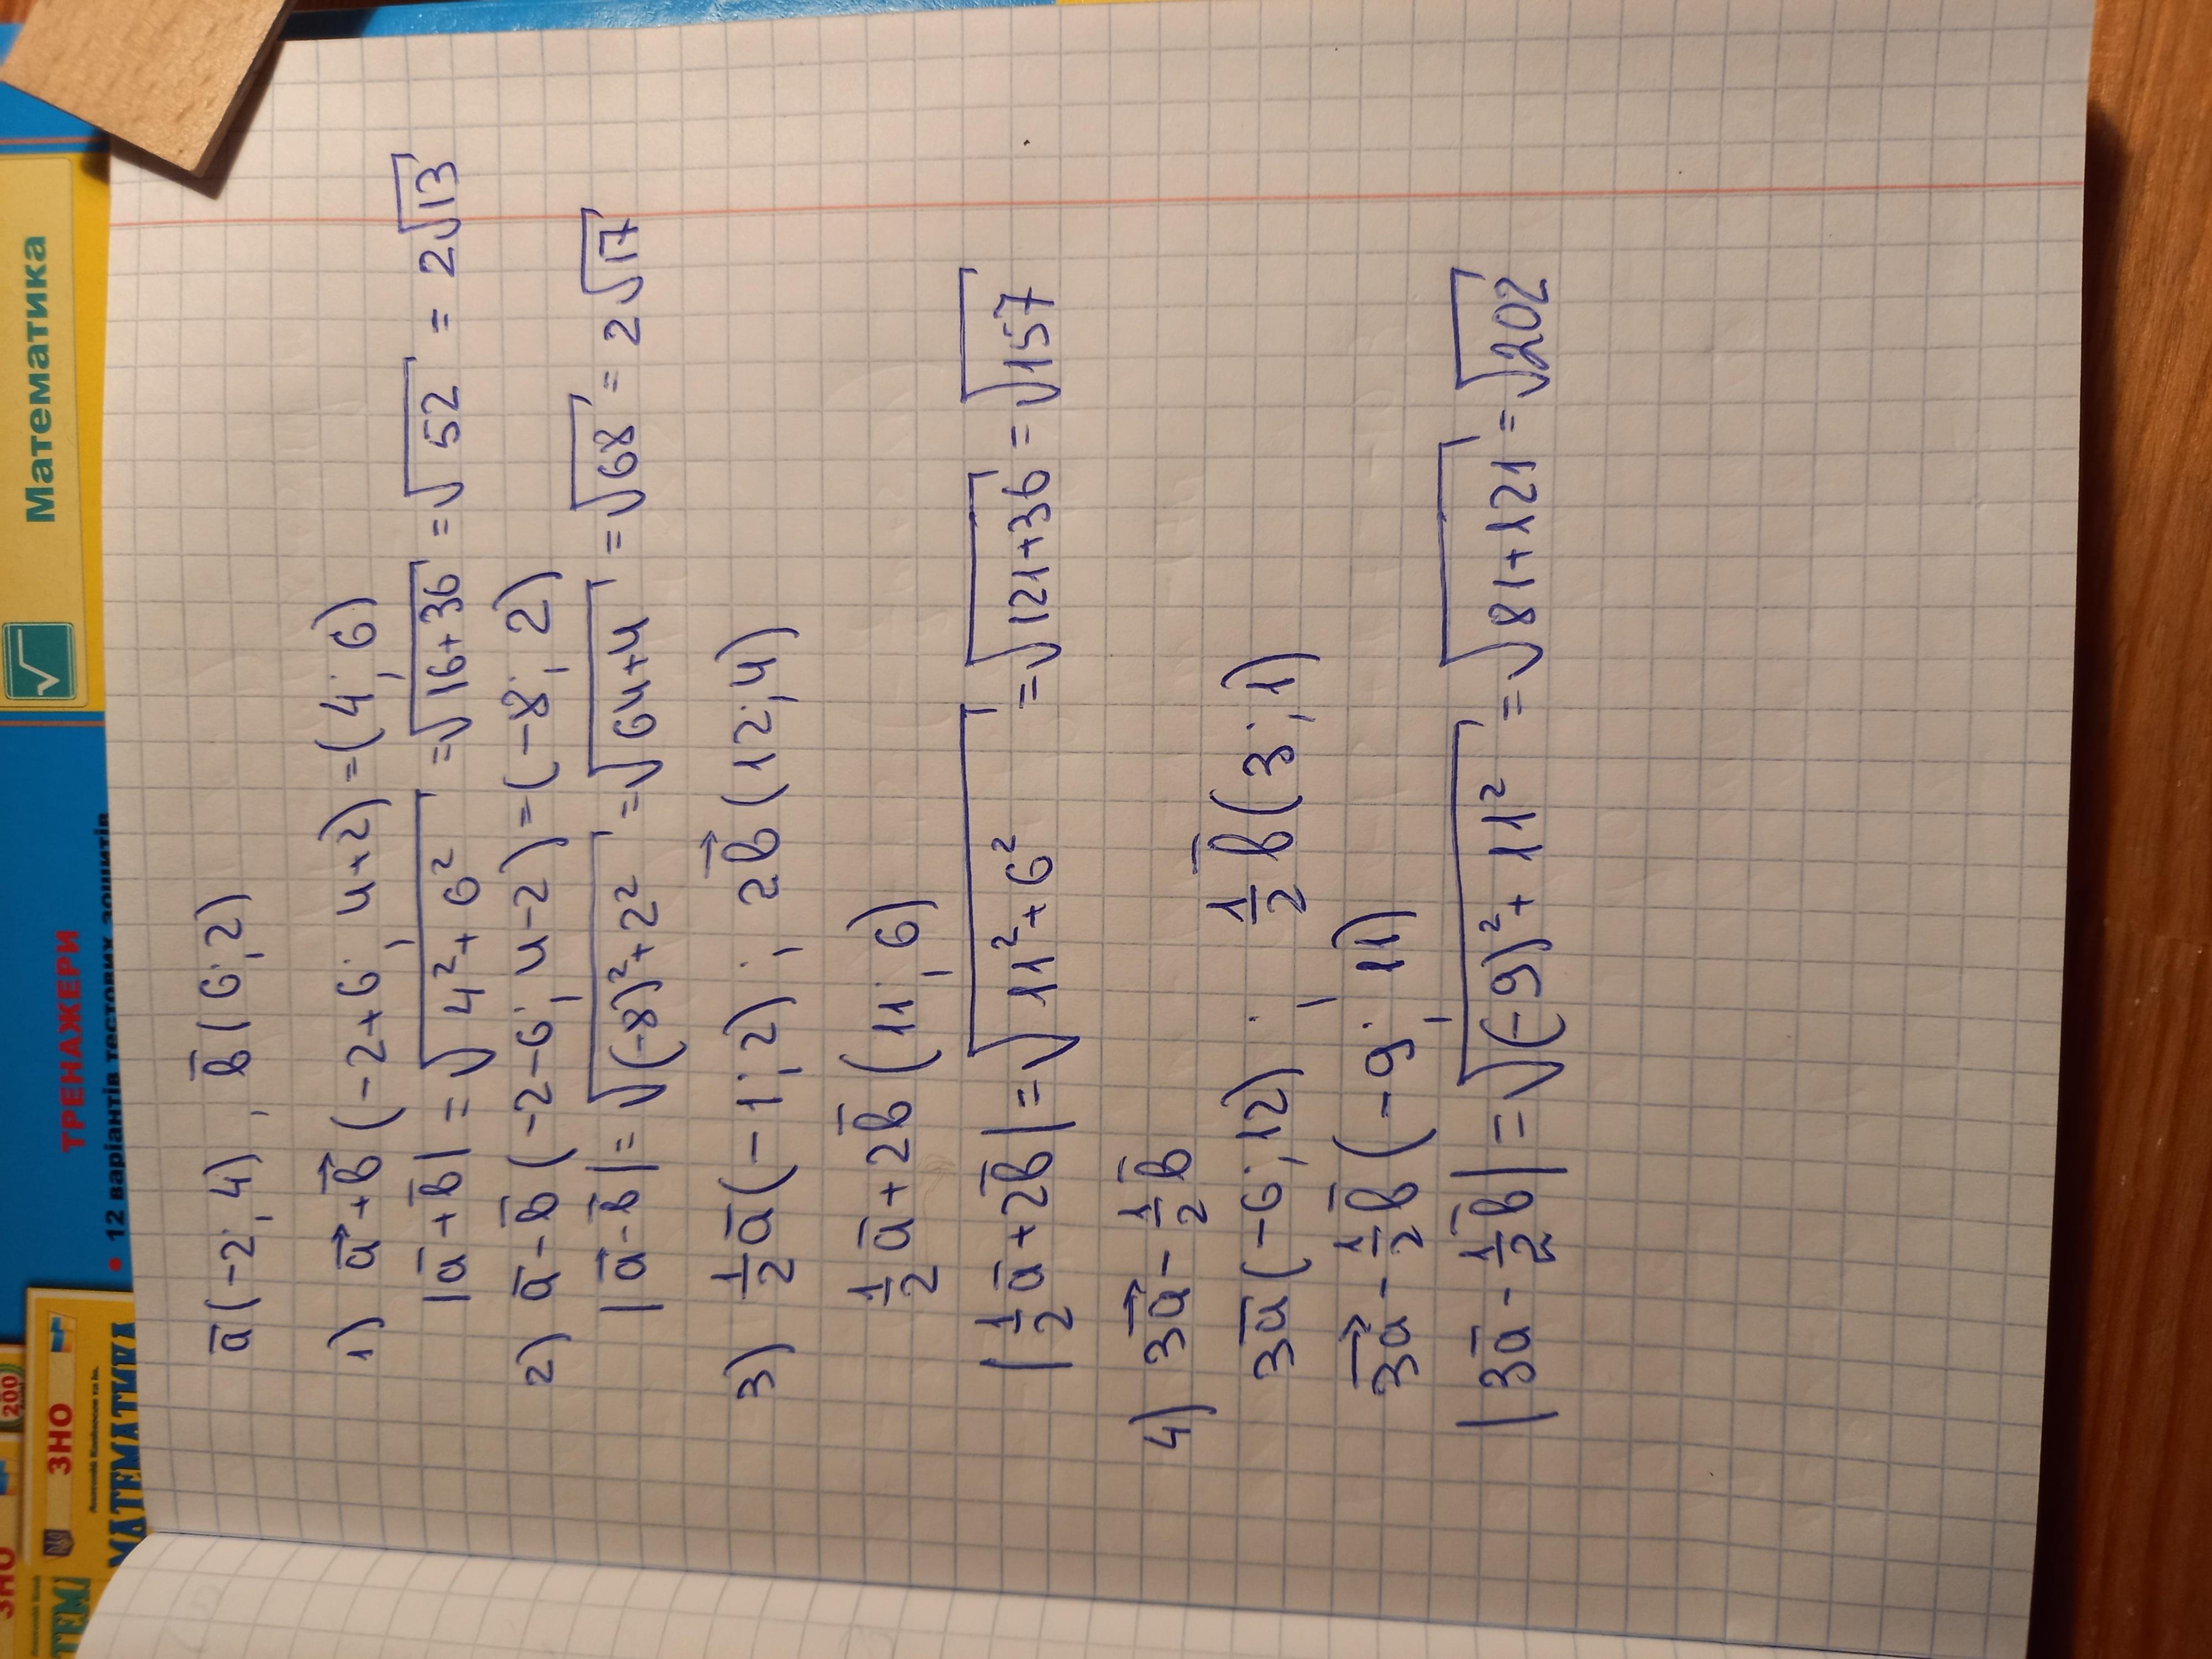 Математика
ТРЕНАЖЕРИ
• 12 варіантів тестових зошитів
200
ЗНО
МАТЕМАТИКА
ЗНО
ТЕМ
a̅(-2; 4), b̅(6; 2)
1) a⃗+b⃗(-2+6; 4+2)=(4; 6)
|a̅+b̅|=√4²+6² =√16+36 =√52 = 2√13
2) a̅-b̅(-2-6; 4-2)=(-8; 2)
|a̅-b̅|=√(-8)²+2² =√64+4 =√68 = 2√17
3) ½a̅(-1; 2); 2b⃗(12; 4)
½a̅+2b̅(11; 6)
|½a̅+2b̅|=√11²+6² =√121+36 =√157
4) 3a⃗-½b̅
3a̅(-6; 12); ½b̅(3; 1)
3a⃗-½b̅(-9; 11)
|3a̅-½b̅|=√(-9)²+11² =√81+121 =√202